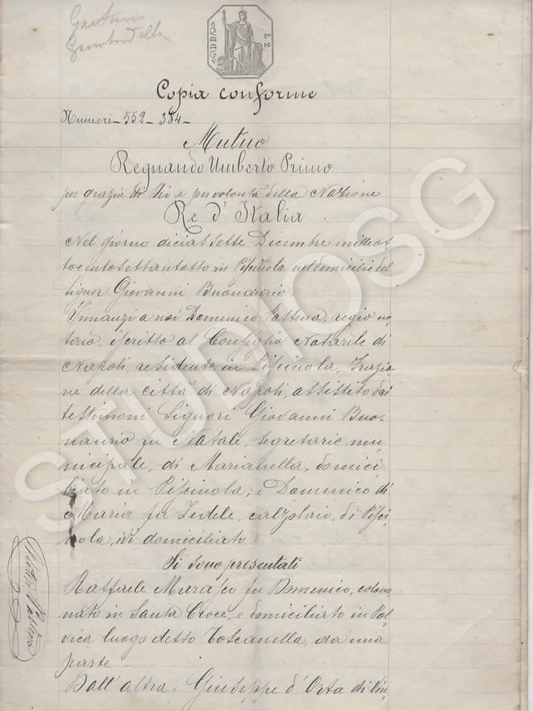 Gaetano
Copia conforme
Numeri 552 - 384
Mutuo
Regnando Umberto Primo
per grazia di Dio e per volontà della Nazione
Re d'Italia
Nel giorno diciassette Dicembre milleot
tocentosettantotto in Piscinola nel domicilio del
Signor Giovanni Buonaurio
Innanzi a noi Domenico Testena, regio no
tario, iscritto al Consiglio Notarile di
Napoli, residente in Piscinola, frazio
ne della città di Napoli, assistito dai
testimoni Signori Giovanni Buo-
naurio fu Natale, segretario mu
nicipale, di Marianella, domici
liato in Piscinola; e Domenico di
Maria fu Fedele, calzolaio, di Pisci
nola, ivi domiciliato
Si sono presentati
Raffaele Marasco fu Domenico, colono,
nato in Santa Croce, e domiciliato in Pol
vica luogo detto Toscanella, da una
parte -
Dall'altra - Giuseppe d'Orta di Vin
STUDIOSG